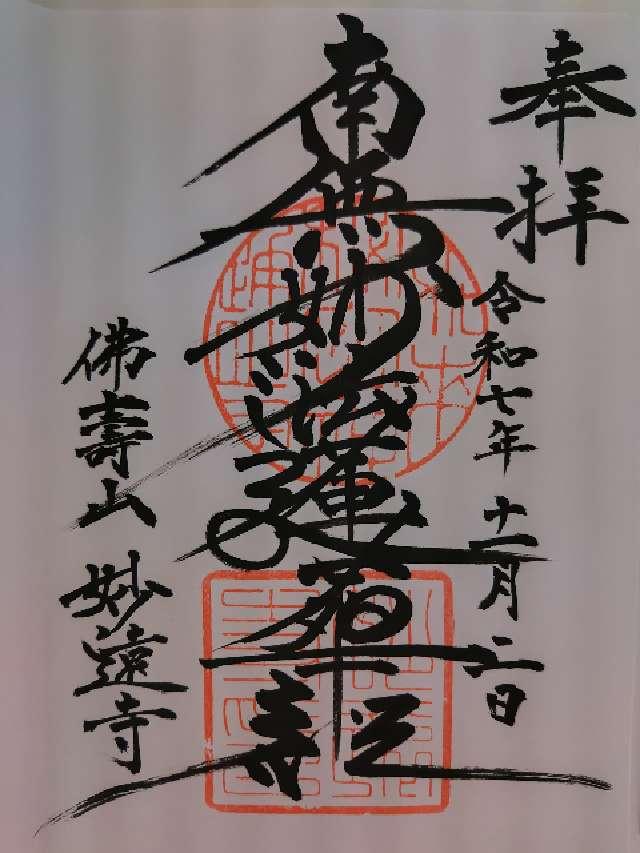 奉拝
令和七年十一月二日
南無妙法蓮華経
佛壽山 妙遠寺